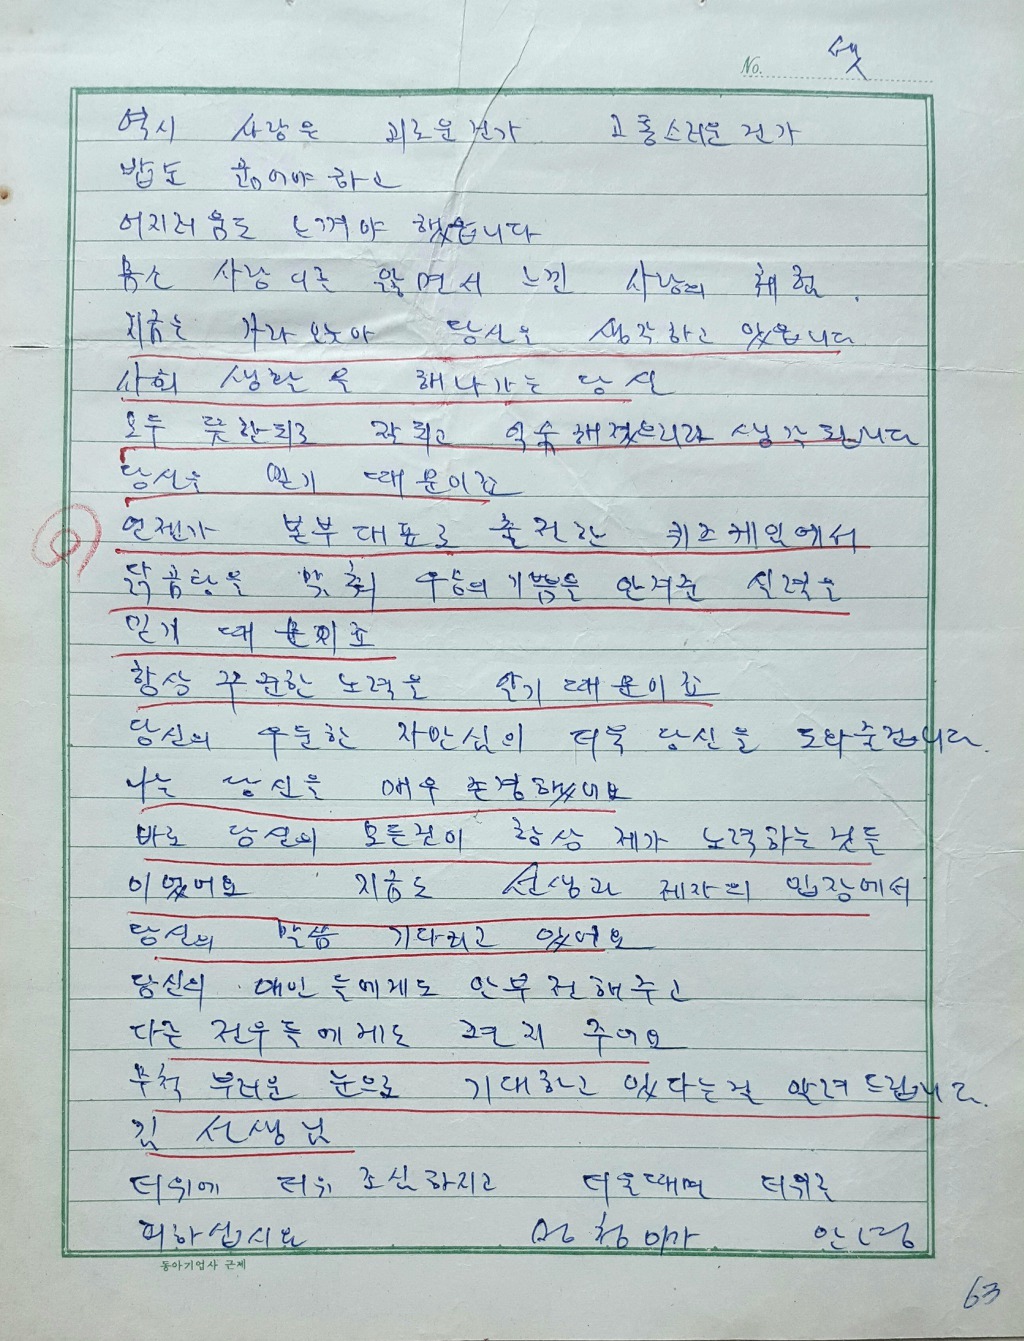 No. 넷
역시 사랑은 괴로운건가 고통스러운건가
밥도 굶어야하고
어지러움도 느껴야 했읍니다
몸소 사랑니를 앓으면서 느낀 사랑의 체험.
지금은 가라앉아 당신을 생각하고 있읍니다
사회 생활을 해나가는 당신
모두 파악되고 익숙해졌으리라 생각됩니다
당신을 믿기 때문이죠
언젠가 본부대표로 출전한 퀴즈게임에서
닭곰탕을 우승의 기쁨을 안겨준 실력을
믿기 때문이죠
항상 꾸준한 노력을 알기 때문이죠
당신의 우둔한 자만심이 더욱 당신을 도와줄겁니다.
나는 당신을 매우 존경했어요
바로 당신의 모든것이 항상 제가 노력하는것들
이었어요 지금도 선생과 제자의 입장에서
당신의 말씀 기다리고 있어요
당신의 애인들에게도 안부전해주고
다른 전우들에게도 편지 주어요
무척 부러운 눈으로 기대하고 있다는걸 알려드립니다.
김 선생님
더위에 더위 조심하시고 더울때면 더위를
피하십시요 멍청이가 안녕
동아기업사 근제
63